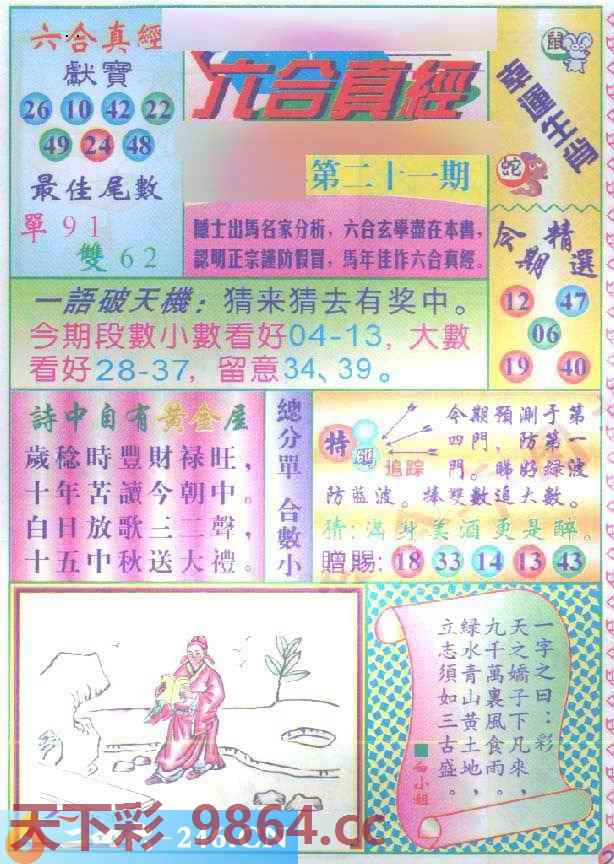 六合真經
獻寶
26 10 42 22
49 24 48
最佳尾數
單 9 1
雙 6 2
六合真經
第二十一期
隱士出馬名家分析，六合玄學盡在本書，
認明正宗謹防假冒，馬年佳作六合真經。
鼠
幸運生肖
蛇
今期精選
12 47
06
19 40
一語破天機：猜来猜去有奖中。
今期段數小數看好04-13，大數
看好28-37，留意34、39。
詩中自有黃金屋
歲稔時豐財禄旺，
十年苦讀今朝中。
白日放歌三二聲，
十五中秋送大禮。
總分單 合數小
特
追踪
今期預測于第
四門，防第一
門。睇好綠波
防蓝波。捧雙數追大數。
猜：滿身美酒更是醉。
贈賜：18 33 14 13 43
一字之曰：彩
天之嬌子下凡來，
九千萬裏風食雨。
緑水青山黄土地，
立志須如三古盛。
天下彩 9864.cc
246.CN